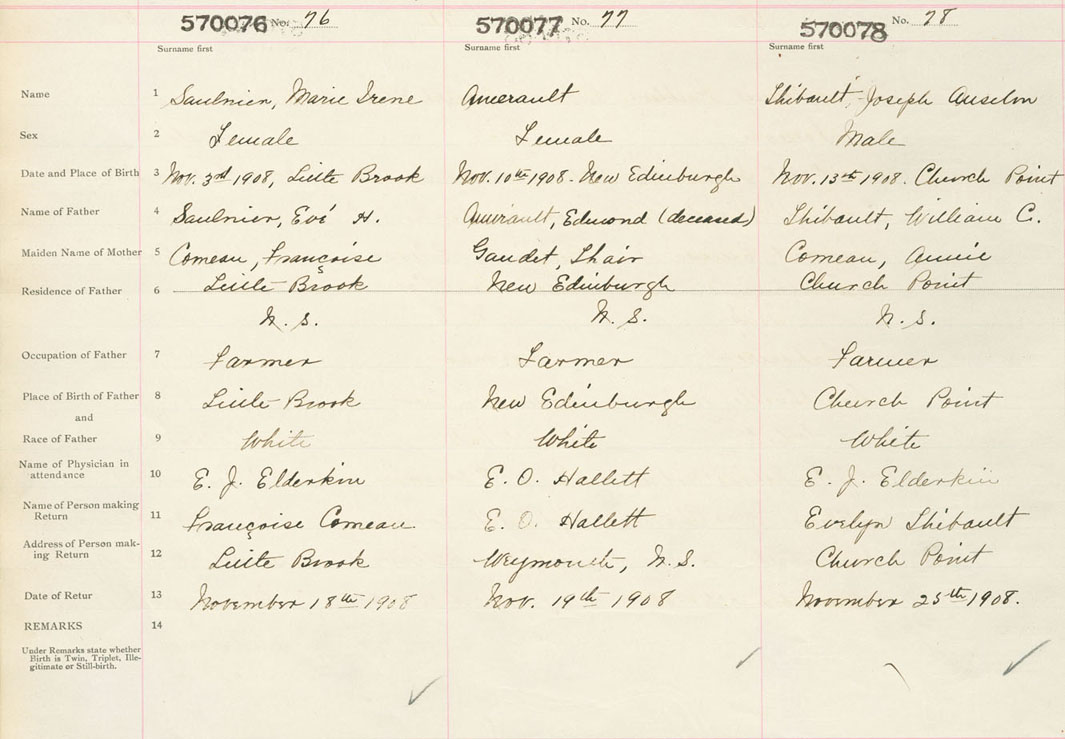 570076 No. 76 570077 No. 77 570078 No. 78
Surname first Surname first Surname first
Name 1 Saulnier, Marie Irene Amerault Thibault, Joseph Anselm
Sex 2 Female Female Male
Date and Place of Birth 3 Nov. 3rd 1908, Little Brook Nov. 10th 1908. New Edinburgh Nov. 13th 1908. Church Point
Name of Father 4 Saulnier, H. Amirault, Edmond (deceased) Thibault, William C.
Maiden Name of Mother 5 Comeau, Françoise Gaudet, Comeau, Annie
Residence of Father 6 Little Brook New Edinburgh Church Point
N. S. N. S. N. S.
Occupation of Father 7 Farmer Farmer Farmer
Place of Birth of Father 8 Little Brook New Edinburgh Church Point
and
Race of Father 9 White White White
Name of Physician in
attendance 10 E. J. Elderkin E. O. Hallett E. J. Elderkin
Name of Person making
Return 11 Françoise Comeau E. O. Hallett Evelyn Thibault
Address of Person mak-
ing Return 12 Little Brook Weymouth, N. S. Church Point
Date of Retur 13 November 18th 1908 Nov. 19th 1908 November 25th 1908.
REMARKS 14
Under Remarks state whether
Birth is Twin, Triplet, Ille-
gitimate or Still-birth.